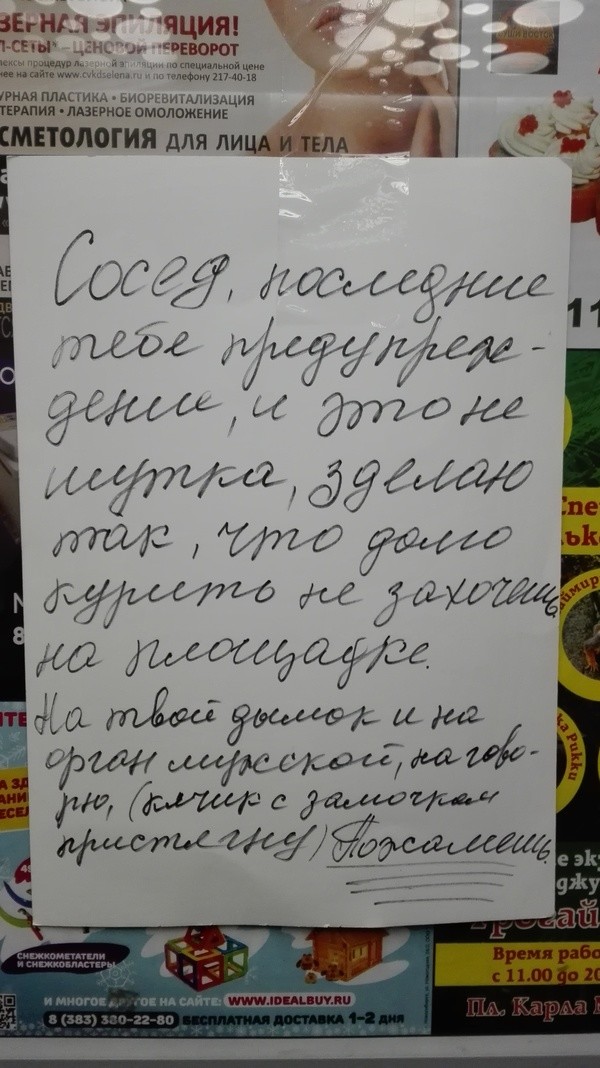 ЗЕРНАЯ ЭПИЛЯЦИЯ!
Л-СЕТЫ* – ЦЕНОВОЙ ПЕРЕВОРОТ
лексы процедур лазерной эпиляции по специальной цене
нее на сайте www.cvkdselena.ru и по телефону 217-40-18
УРНАЯ ПЛАСТИКА • БИОРЕВИТАЛИЗАЦИЯ
ТЕРАПИЯ • ЛАЗЕРНОЕ ОМОЛОЖЕНИЕ
СМЕТОЛОГИЯ ДЛЯ ЛИЦА И ТЕЛА
Сосед, последние
тебе предупреж-
дение, и это не
шутка, зделаю
так, что долго
курить не захочешь
на площадке.
На твой дымок и на
орган мужской, нагово-
рю, (клчик с замочком
пристягну) Пожалеешь
СНЕЖКОМЕТАТЕЛИ
И СНЕЖКОБЛАСТЕРЫ
И МНОГОЕ ДРУГОЕ НА САЙТЕ: WWW.IDEALBUY.RU
8 (383) 380-22-80 БЕСПЛАТНАЯ ДОСТАВКА 1-2 ДНЯ
Время рабо
с 11.00 до 20
Пл. Карла